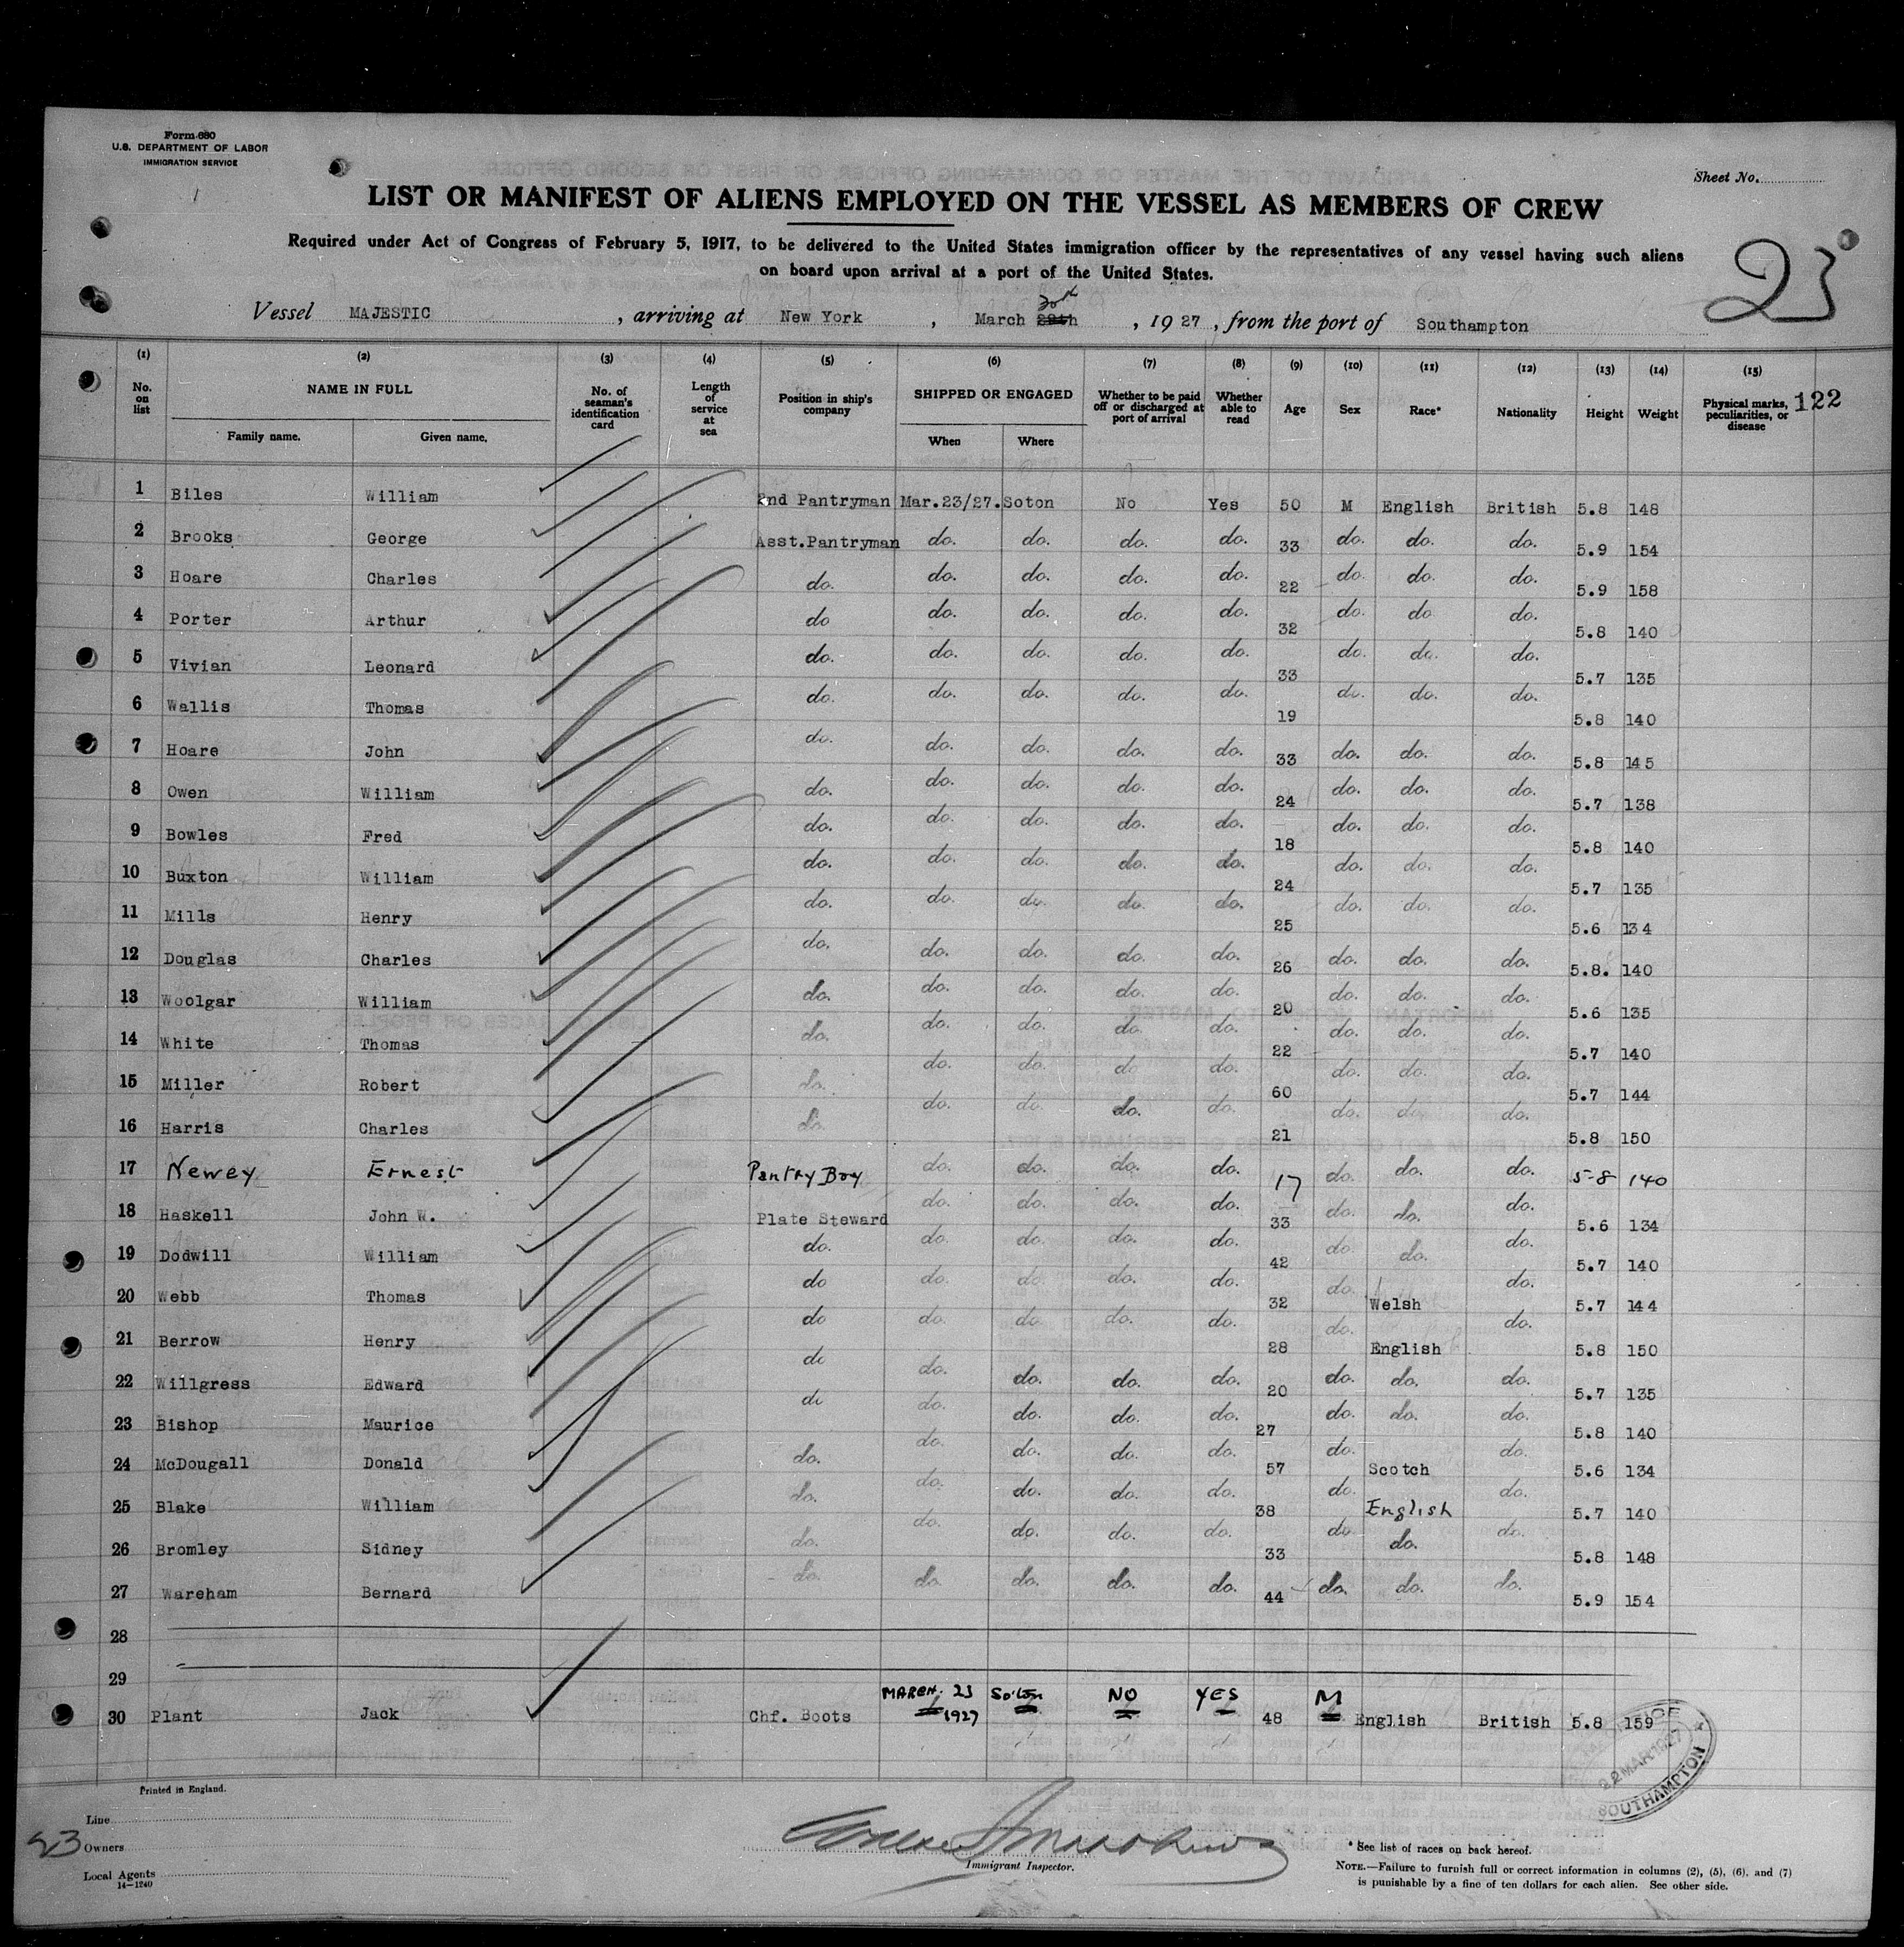 Form 680
U.S. DEPARTMENT OF LABOR
IMMIGRATION SERVICE
Sheet No.
LIST OR MANIFEST OF ALIENS EMPLOYED ON THE VESSEL AS MEMBERS OF CREW
Required under Act of Congress of February 5, 1917, to be delivered to the United States immigration officer by the representatives of any vessel having such aliens
on board upon arrival at a port of the United States.
23
Vessel MAJESTIC , arriving at New York , March 30th , 1927 , from the port of Southampton
(1) (2) (3) (4) (5) (6) (7) (8) (9) (10) (11) (12) (13) (14) (15)
No. on list NAME IN FULL Family name. Given name. No. of seaman's identification card Length of service at sea Position in ship's company SHIPPED OR ENGAGED When Where Whether to be paid off or discharged at port of arrival Whether able to read Age Sex Race* Nationality Height Weight Physical marks, peculiarities, or disease 122
1 Biles William 2nd Pantryman Mar.23/27. Soton No Yes 50 M English British 5.8 148
2 Brooks George Asst.Pantryman do. do. do. do. 33 do. do. do. 5.9 154
3 Hoare Charles do. do. do. do. do. 22 do. do. do. 5.9 158
4 Porter Arthur do do. do. do. do. 32 do. do do. 5.8 140
5 Vivian Leonard do. do. do. do. do. 33 do. do. do. 5.7 135
6 Wallis Thomas do. do. do. do. do. 19 do. do. do. 5.8 140
7 Hoare John do. do. do. do. do. 33 do. do. do. 5.8 145
8 Owen William do. do. do. do. do. 24 do. do. do. 5.7 138
9 Bowles Fred do. do. do. do. do. 18 do. do. do. 5.8 140
10 Buxton William do. do. do. do. do. 24 do. do. do. 5.7 135
11 Mills Henry do. do. do. do. do. 25 do. do. do. 5.6 134
12 Douglas Charles do. do. do. do. do. 26 do. do. do. 5.8. 140
13 Woolgar William do. do. do. do. do. 20 do. do. do. 5.6 135
14 White Thomas do. do. do. do. do. 22 do. do. do. 5.7 140
15 Miller Robert do. do. do. do do. 60 do. do. do. 5.7 144
16 Harris Charles do. do. do. do. do. 21 do. do. do. 5.8 150
17 Newey Ernest Pantry Boy do. do. do. do. 17 do. do. do. 5-8 140
18 Haskell John W. Plate Steward do. do. do. do. 33 do. do. do. 5.6 134
19 Dodwill William do. do. do. do. do. 42 do. do. do. 5.7 140
20 Webb Thomas do do. do. do. do. 32 do. Welsh do. 5.7 144
21 Berrow Henry do do. do. do. do. 28 do. English do. 5.8 150
22 Willgress Edward do do. do. do. do. 20 do. do. do. 5.7 135
23 Bishop Maurice do do. do. do. do. 27 do. do. do. 5.8 140
24 McDougall Donald do. do. do. do. do. 57 do. Scotch do. 5.6 134
25 Blake William do. do. do. do. do. 38 do. English do. 5.7 140
26 Bromley Sidney do. do. do. do. do. 33 do do. do. 5.8 148
27 Wareham Bernard do. do. do. do. do. 44 do. do. do. 5.9 154
28
29
30 Plant Jack Chf. Boots MARCH. 23 1927 So'ton NO YES 48 M English British 5.8 159
22 MAR 1927
SOUTHAMPTON
Printed in England.
Line
23
Owners
Local Agents
14-1240
Immigrant Inspector.
* See list of races on back hereof.
NOTE.—Failure to furnish full or correct information in columns (2), (5), (6), and (7)
is punishable by a fine of ten dollars for each alien. See other side.